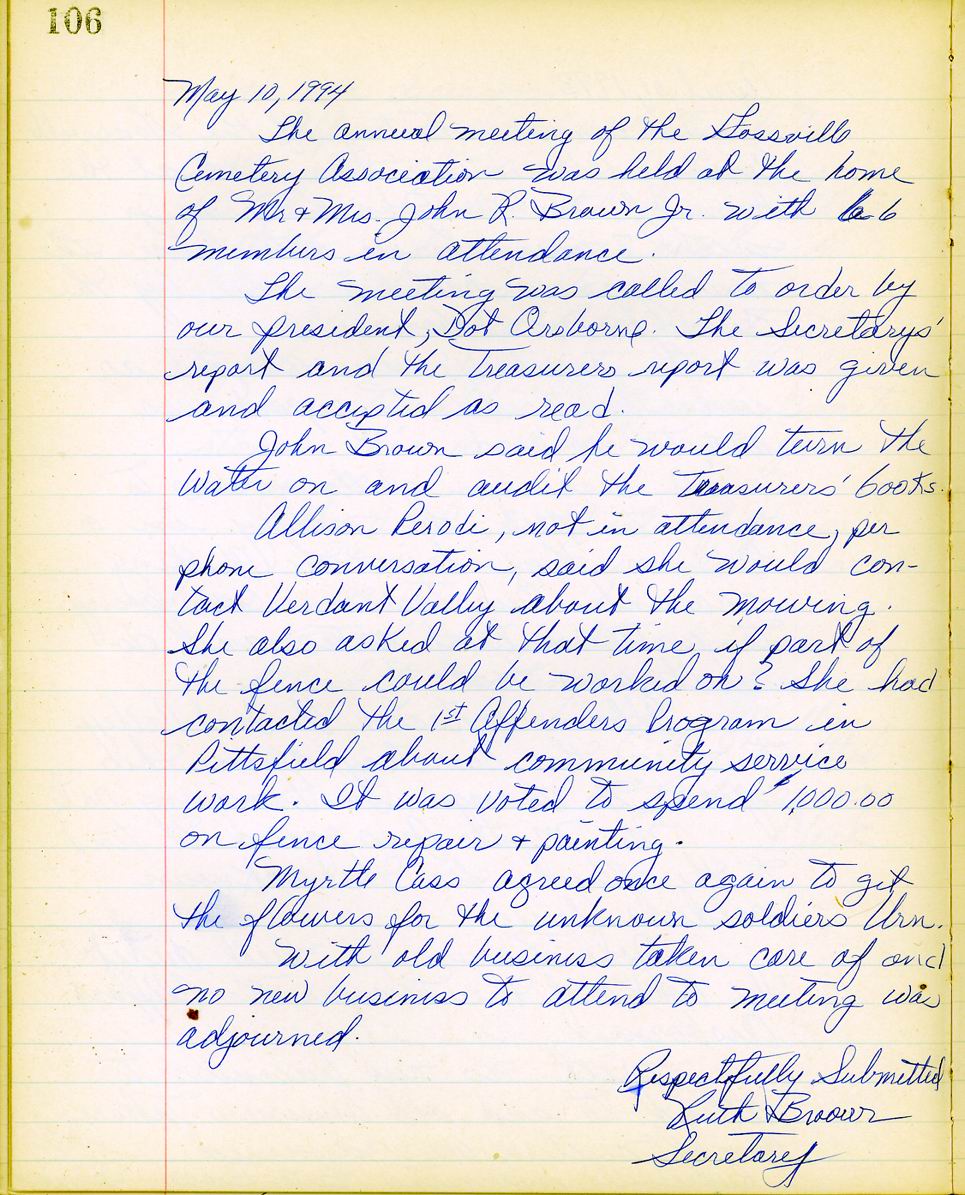 106
May 10, 1994
The annual meeting of the Gossville
Cemetery Association was held at the home
of Mr & Mrs. John R. Brown Jr. with 6
members in attendance.
The meeting was called to order by
our president, Dot Osborne. The Secretarys'
report and the Treasurers report was given
and accepted as read.
John Brown said he would turn the
water on and audit the Treasurers' books.
Allison Perodi, not in attendance, per
phone conversation, said she would con-
tact Verdant Valley about the mowing.
She also asked at that time, if part of
the fence could be worked on? She had
contacted the 1st Offenders Program in
Pittsfield about community service
work. It was voted to spend $1,000.00
on fence repair & painting.
Myrtle Cass agreed once again to get
the flowers for the unknown soldiers Urn.
With old business taken care of and
no new business to attend to meeting was
adjourned.
Respectfully Submitted
Ruth Brown
Secretary